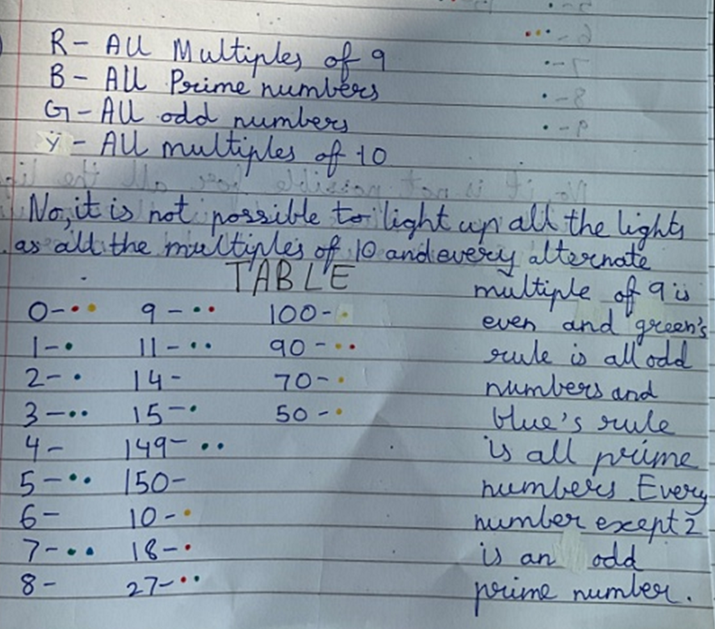 R - All Multiples of 9
B - All Prime numbers
G - All odd numbers
Y - All multiples of 10
No, it is not possible to light up all the lights
as all the multiples of 10 and every alternate
multiple of 9 is
even and green's
rule is all odd
numbers and
blue's rule
is all prime
numbers. Every
number except 2
is an odd
prime number.
TABLE
0-•• 9-•• 100-•
1-• 11-•• 90-••
2-• 14- 70-•
3-•• 15-• 50-•
4- 149-••
5-•• 150-
6- 10-•
7-•• 18-•
8- 27-••